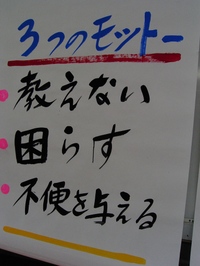 3つのモットー
教えない
困らす
不便を与える